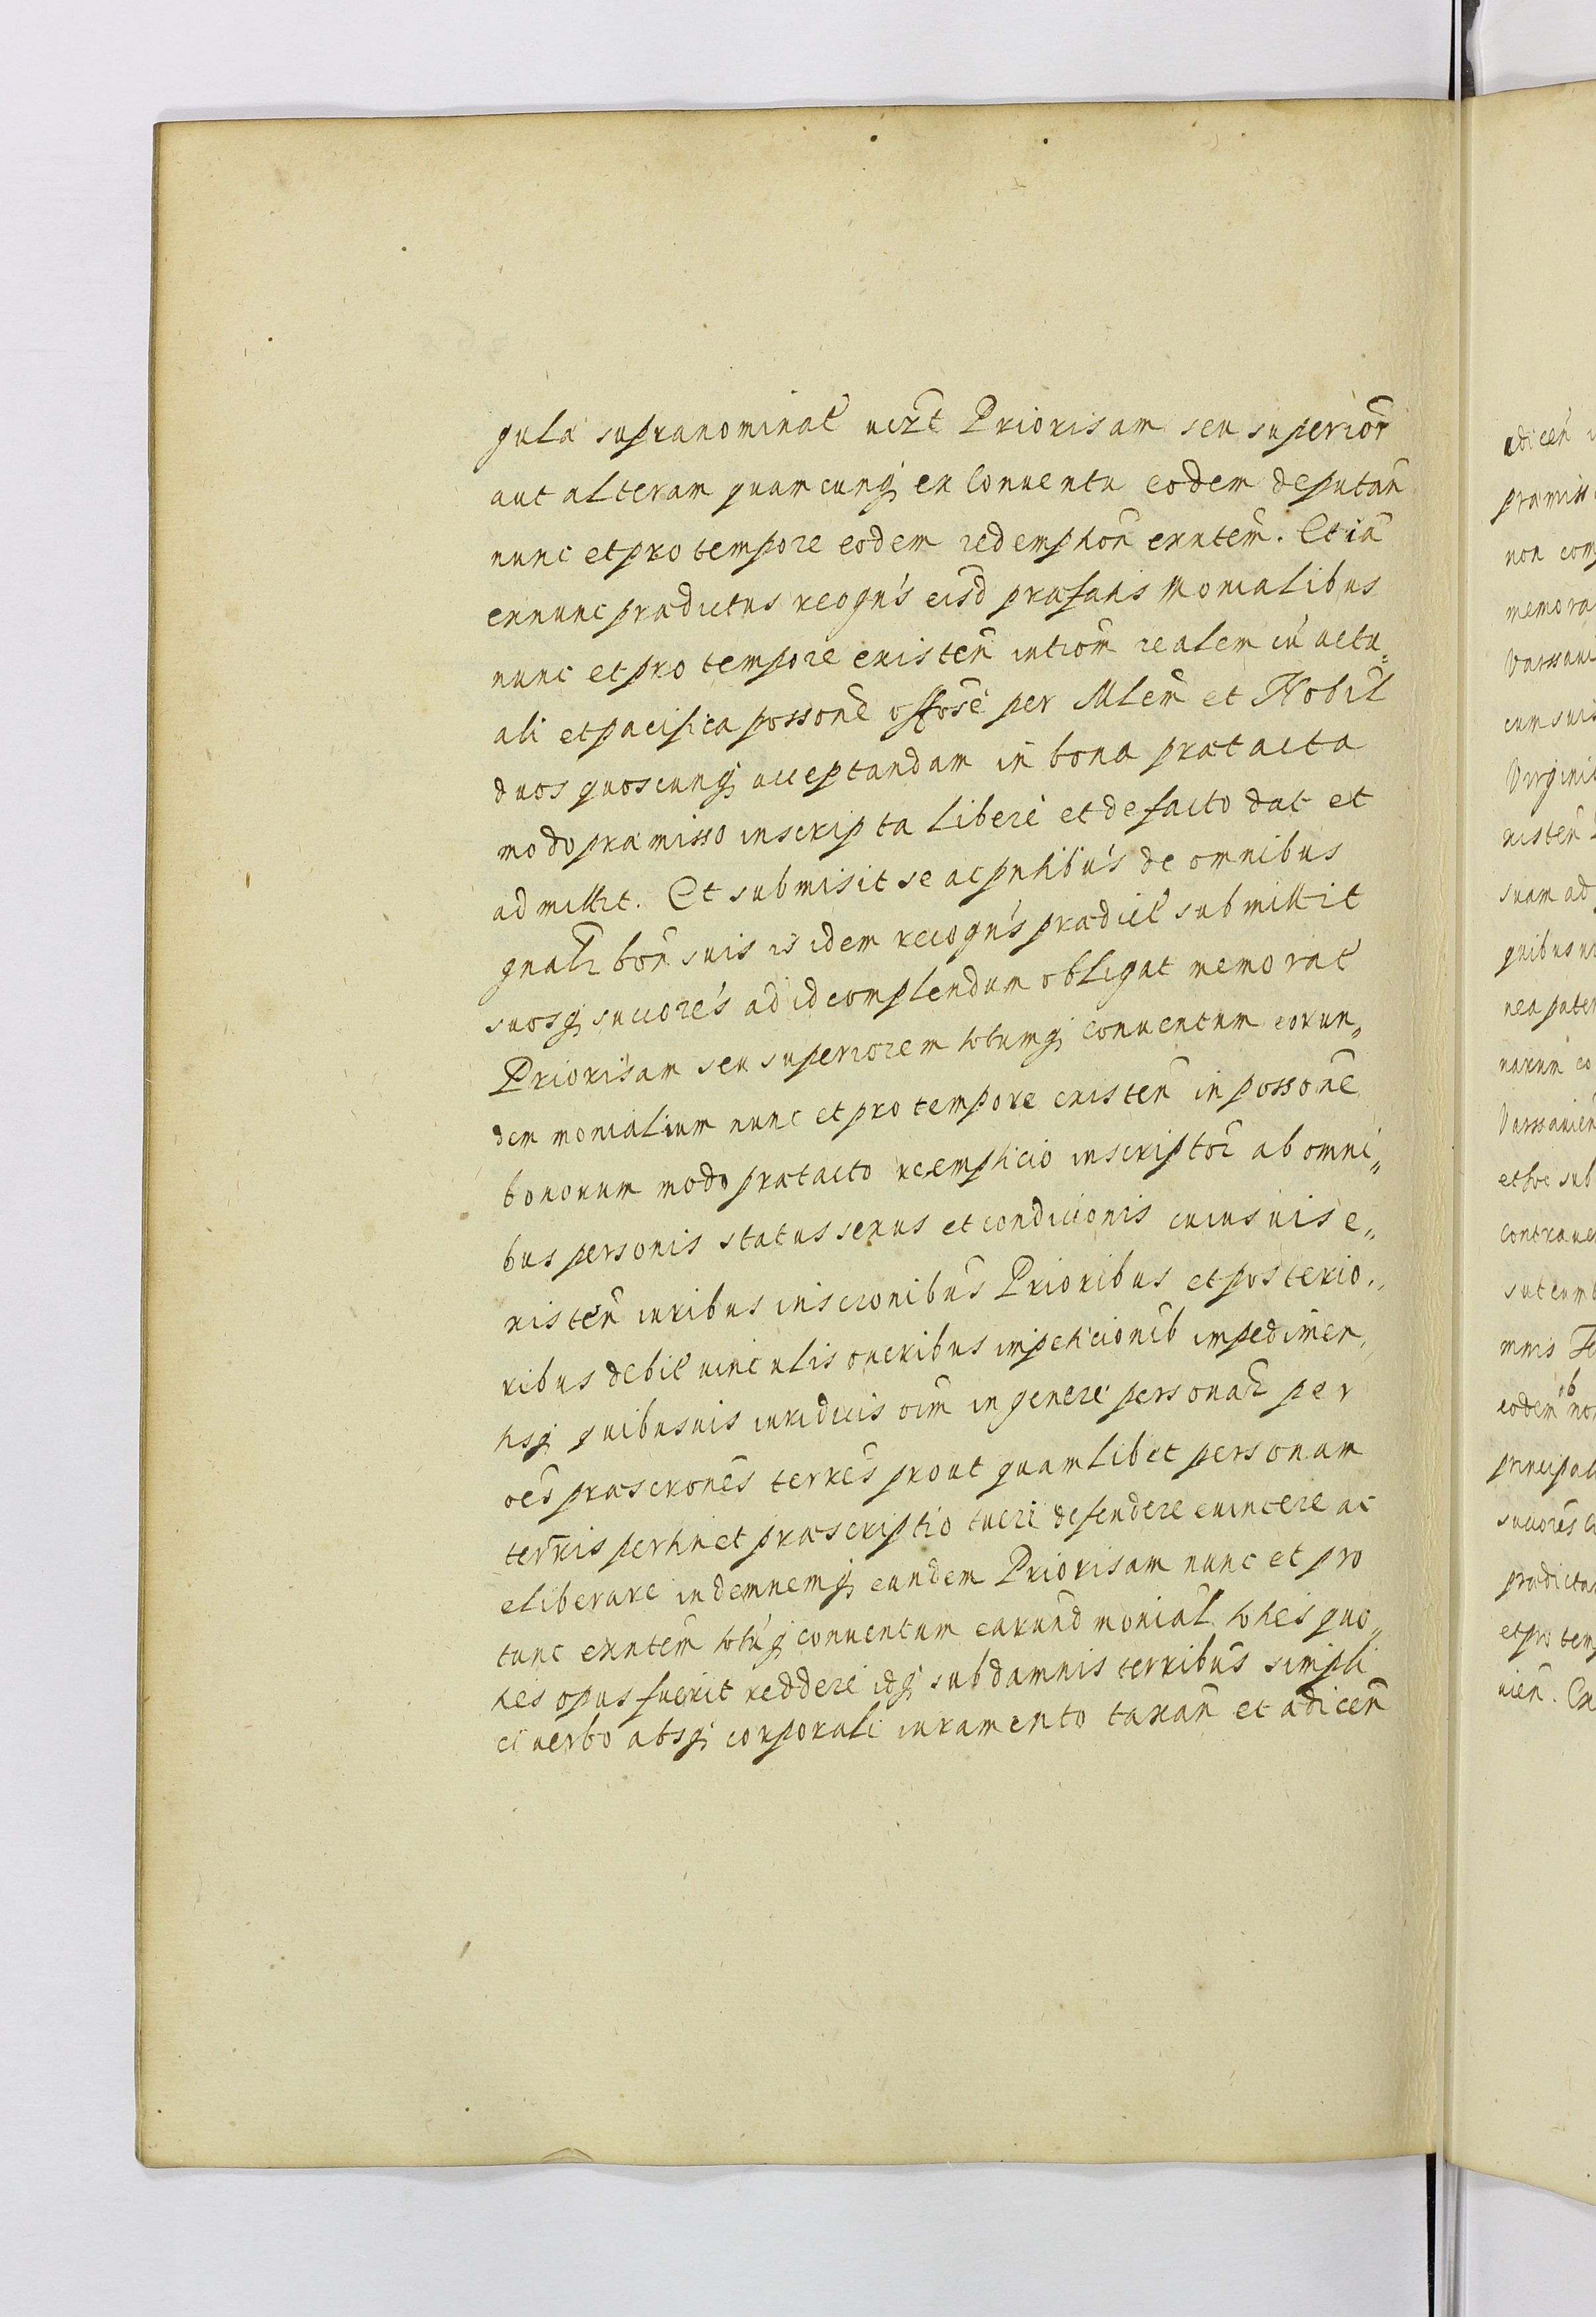 gula supranominat̃ uirt̃ Priorisam seu superior̃
aut alteram quamcunq; ex Conuentu eodem deputañ
nunc et pro tempore eodem redemption̄ exntem̃. Et iã
exnunc prædictus recogn̄s eisd̄ præfatis Monialibus
nunc et pro tempore existeñ introm̃ realem iñ actu„
ali et pacifica possonẽ offosẽ per Mlem̃ et Nobil̃
duos quoscunq; acceptandam iñ bona prætacta
modo præmisso inscripta liberè et de facto dat et
admittit. Et submisit se ac pn̄tibus̃ de omnibus
gnalr̃ boñ suis is idem recogn̄s prædict̃ submittit
suosq; succores̃ ad id complendum obligat memorat̃
Priorisam seu superiorem totumq; conuentum eorun„
dem monialium nunc et pro tempore existeñ in possonẽ
bonorum modo prætacto reempticio inscriptor̃ ab omni„
bus personis status sexus et condicionis cuiusuis e„
xisteñ iuribus inscrionibus̃ Prioribus et posterio„
ribus debit̃ uinculis oneribus impeticionib̃ impedimen„
tisq; quibusuis iuridicis oim̃ in genere personar̃ per
oẽs præscronẽs terrẽs prout quamlibet personam
terr̃is pertinet præscriptio tueri defendere euincere ac
eliberare indemnemq; eandem Priorisam nunc et pro
tunc exntem̃ totũq; conuentum earund̃ monial̃ toties quo„
ties opus fuerit reddere idq; sub damnis terribus̃ simpli
ci uerbo absq; corporali iuramento taxañ et adiceñ